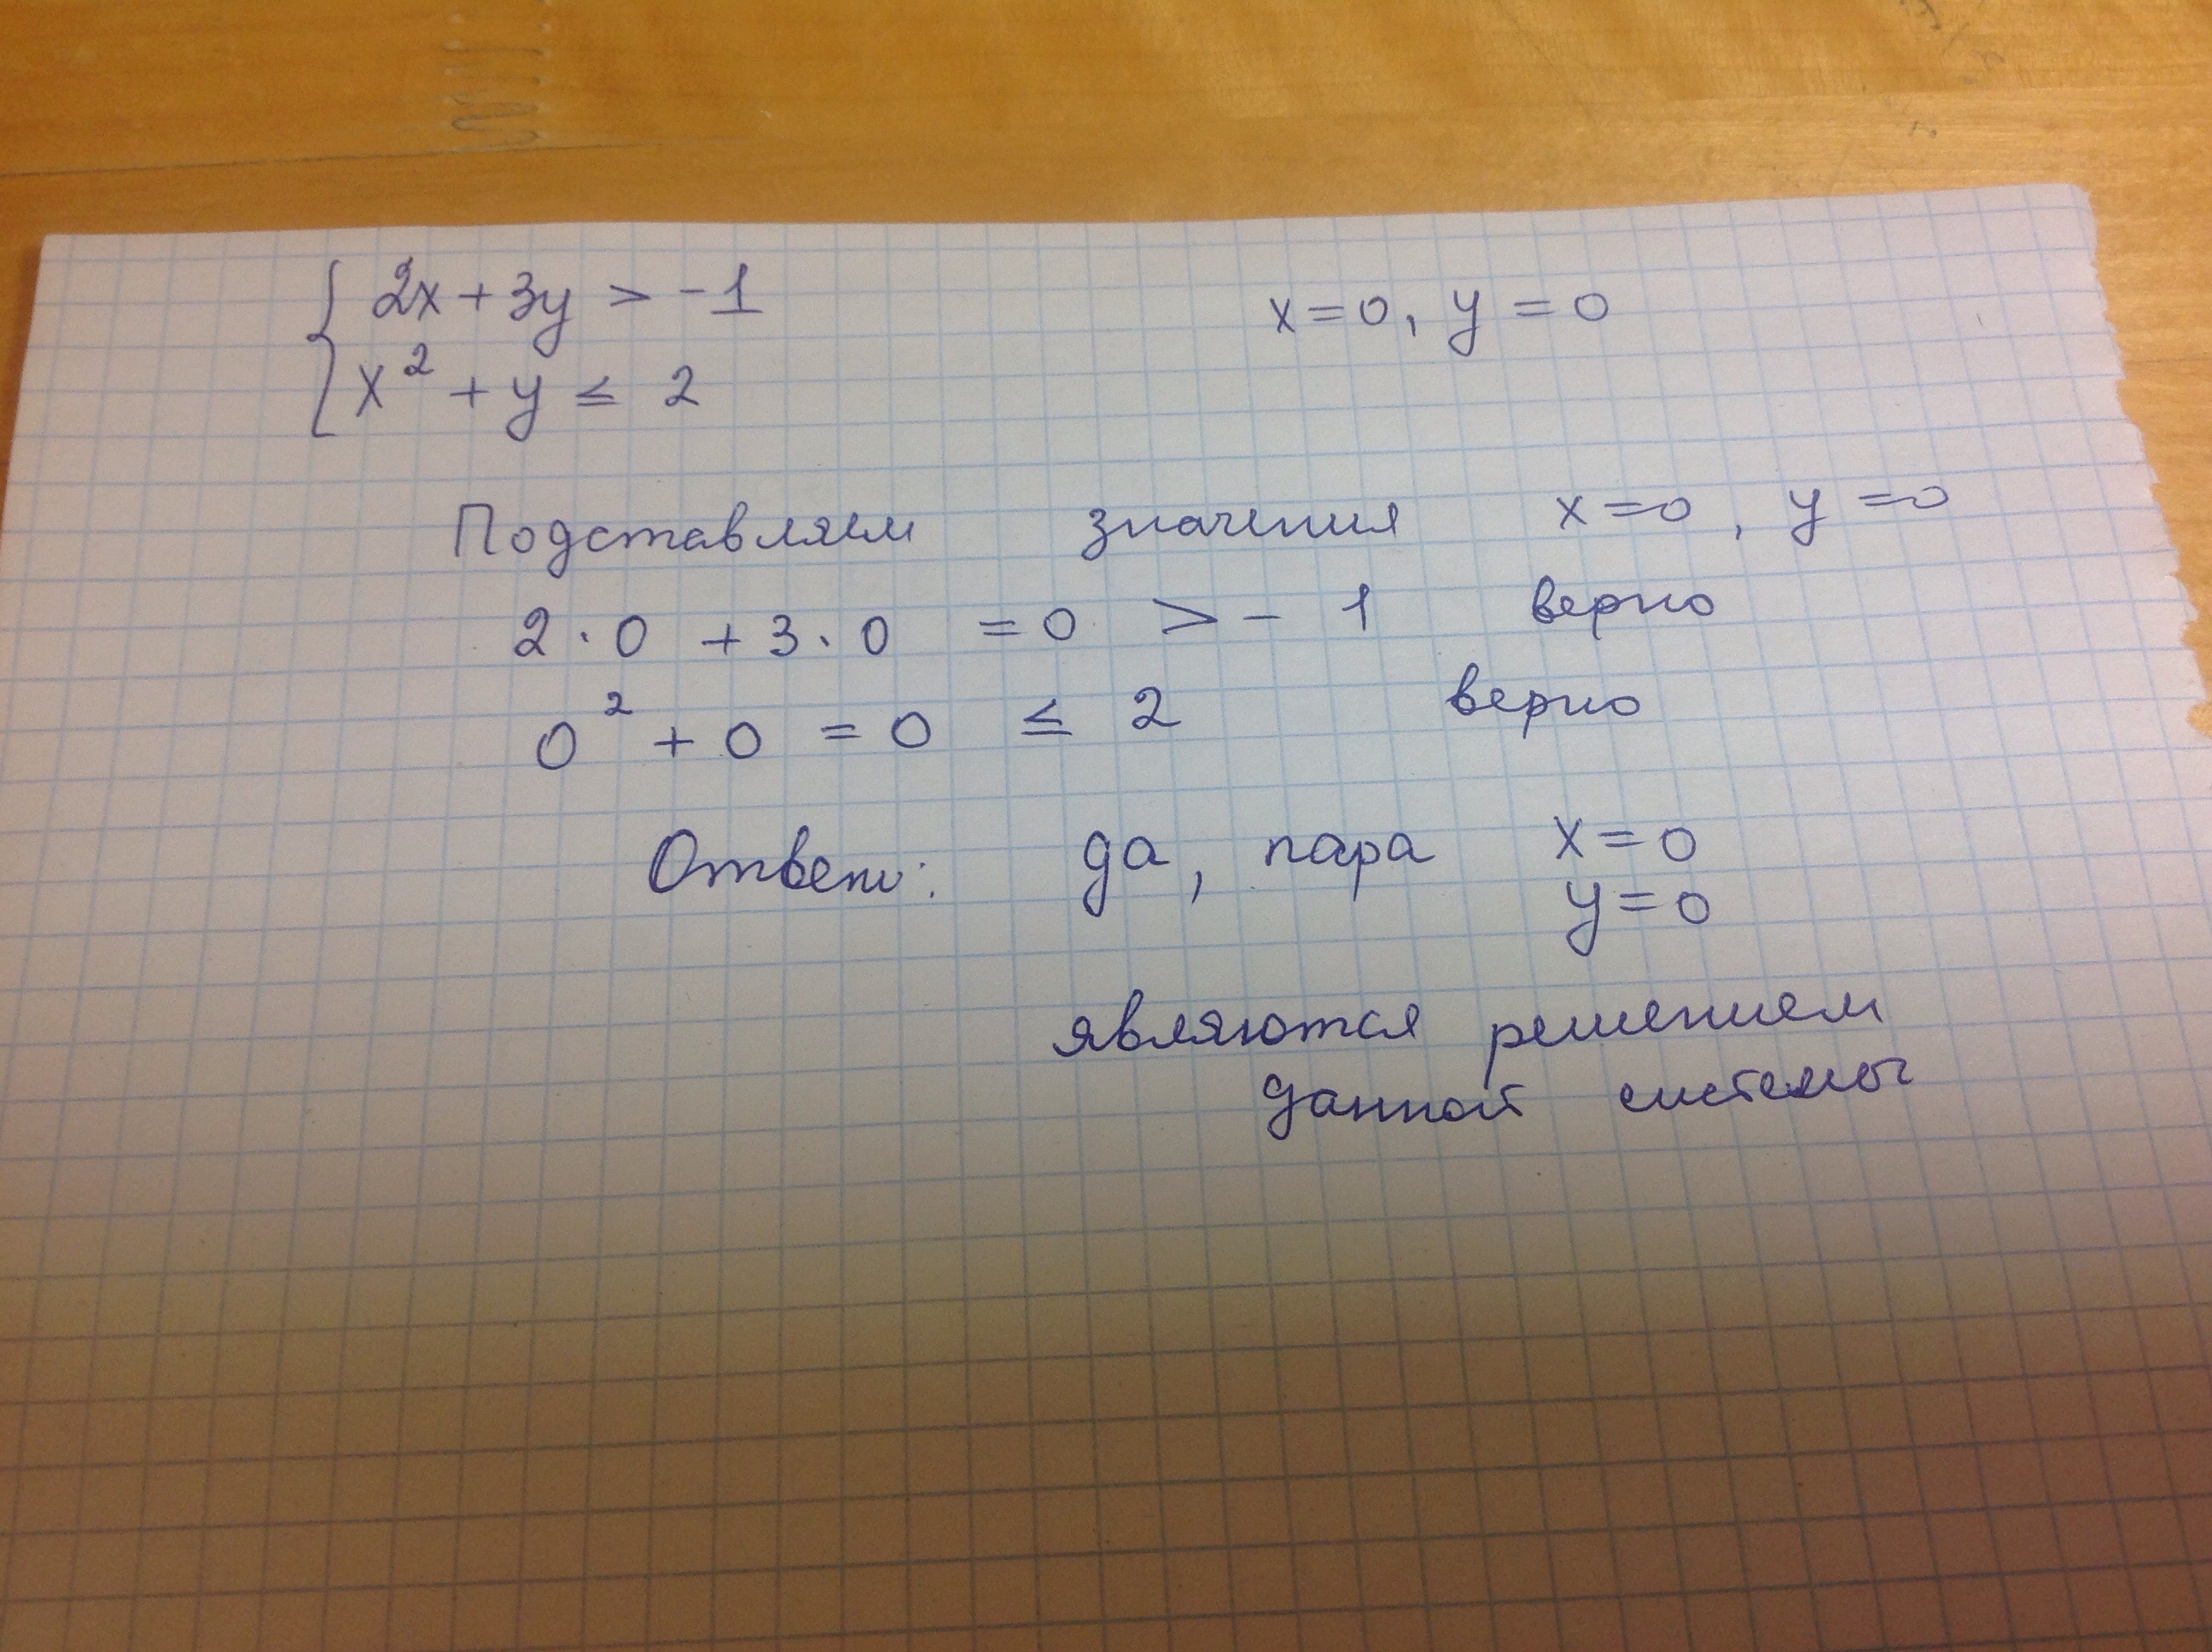 2x + 3y > -1 x = 0, y = 0
x² + y ≤ 2
Подставляем значения x = 0, y = 0
2 · 0 + 3 · 0 = 0 > - 1 верно
0² + 0 = 0 ≤ 2 верно
Ответ: да, пара x = 0
y = 0
являются решением
данной системы